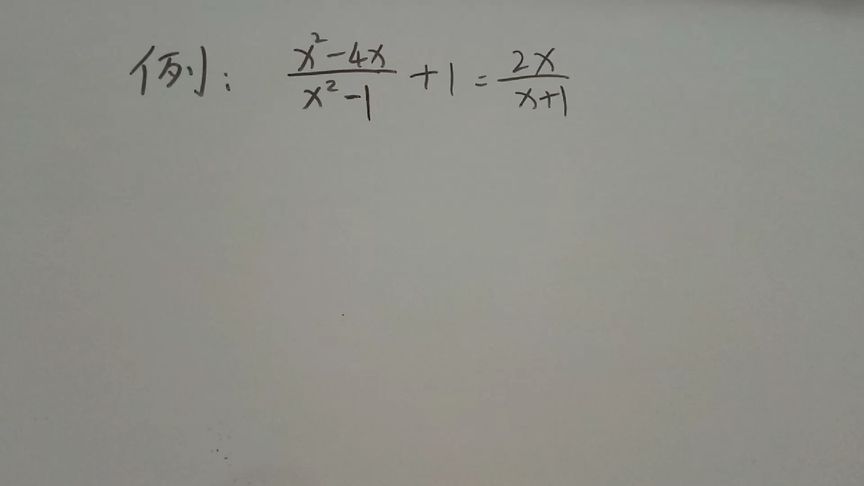 例: \frac{x^2-4x}{x^2-1}+1=\frac{2x}{x+1}